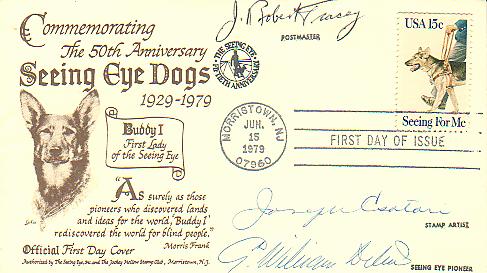 Commemorating
The 50th Anniversary
Seeing Eye Dogs
1929-1979
Buddy I
First Lady
of the Seeing Eye
"As surely as those
pioneers who discovered lands
and ideas for the world, 'Buddy I'
rediscovered the world for blind people."
Morris Frank
Official First Day Cover
Authorized by The Seeing Eye, Inc. and The Jockey Hollow Stamp Club, Morristown, N.J.
J. Robert Tracey
POSTMASTER
THE SEEING EYE
FIFTIETH ANNIVERSARY
MORRISTOWN, NJ
JUN.
15
1979
07960
USA 15c
Seeing For Me
FIRST DAY OF ISSUE
Joseph Csatari
STAMP ARTIST
G. William Debetaz
SEEING EYE PIONEER